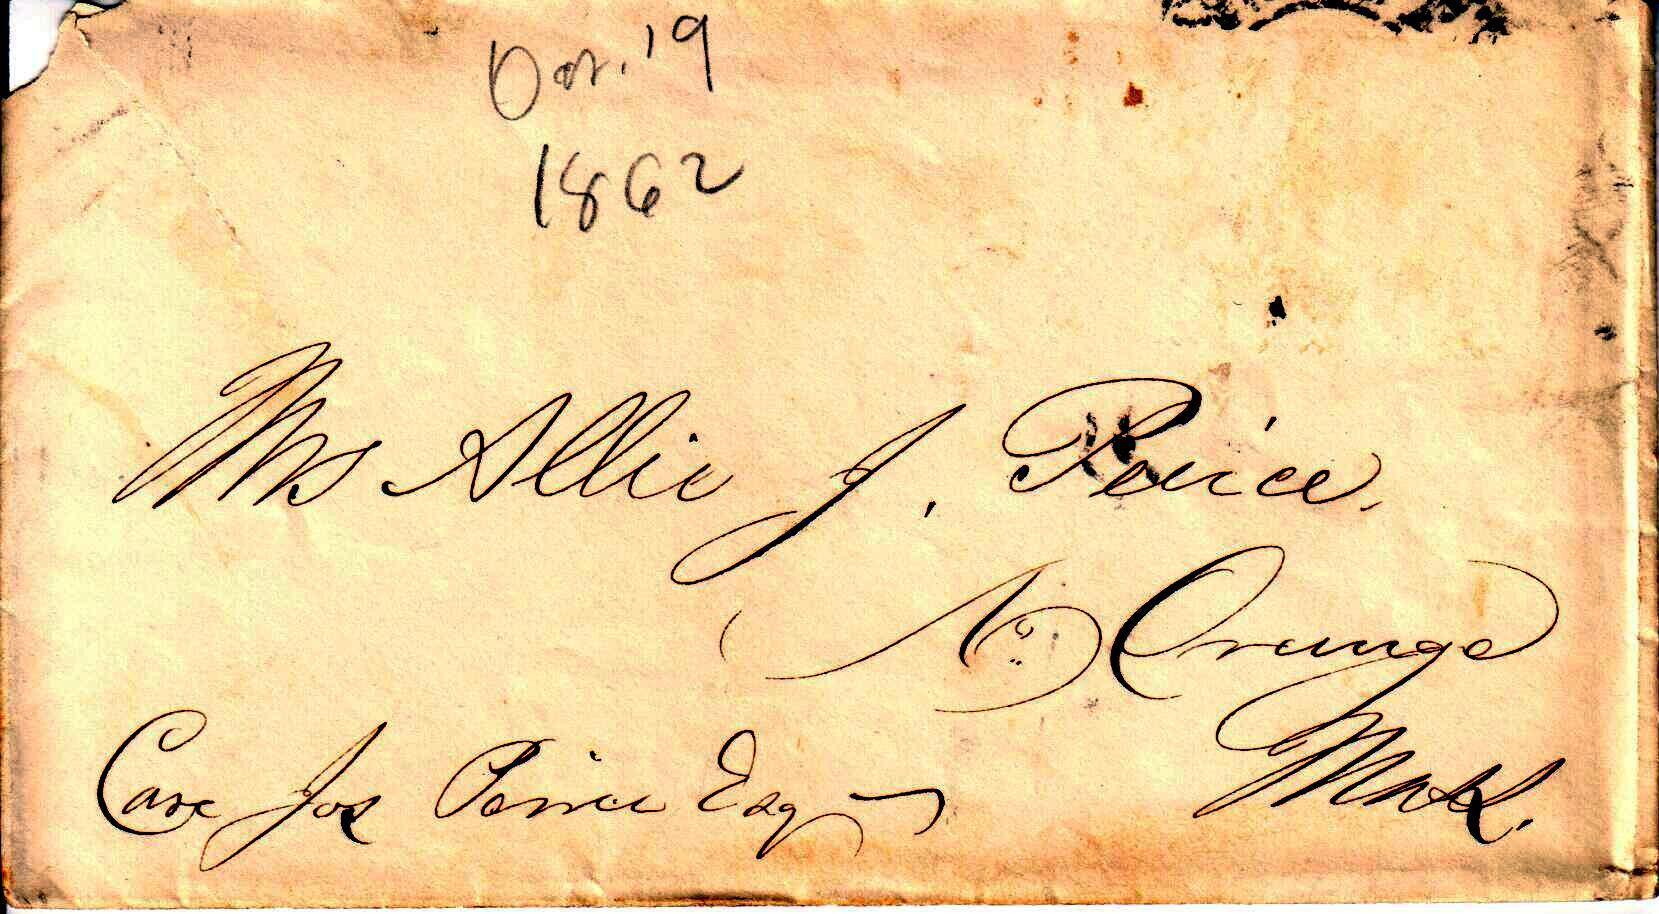 19
1862
Mrs Allie J. Peirce,
No. Orange
Mass.
Care Jos Peirce Esq